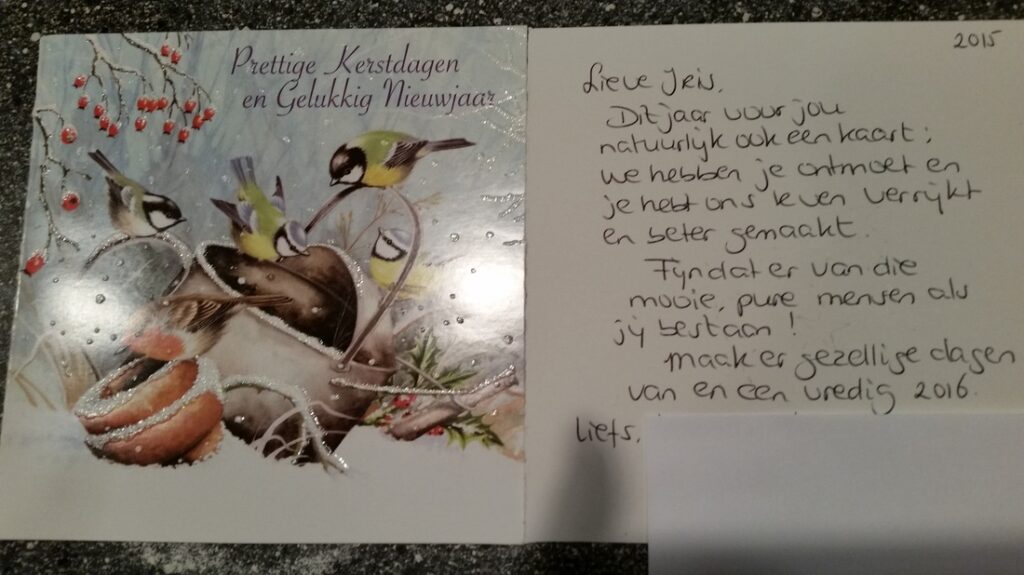 Prettige Kerstdagen
en Gelukkig Nieuwjaar
2015
Lieve Iris,
Dit jaar voor jou
natuurlijk ook een kaart;
we hebben je ontmoet en
je hebt ons leven verrijkt
en beter gemaakt.
Fijn dat er van die
mooie, pure mensen als
jij bestaan!
Maak er gezellige dagen
van en een vredig 2016.
Liefs,